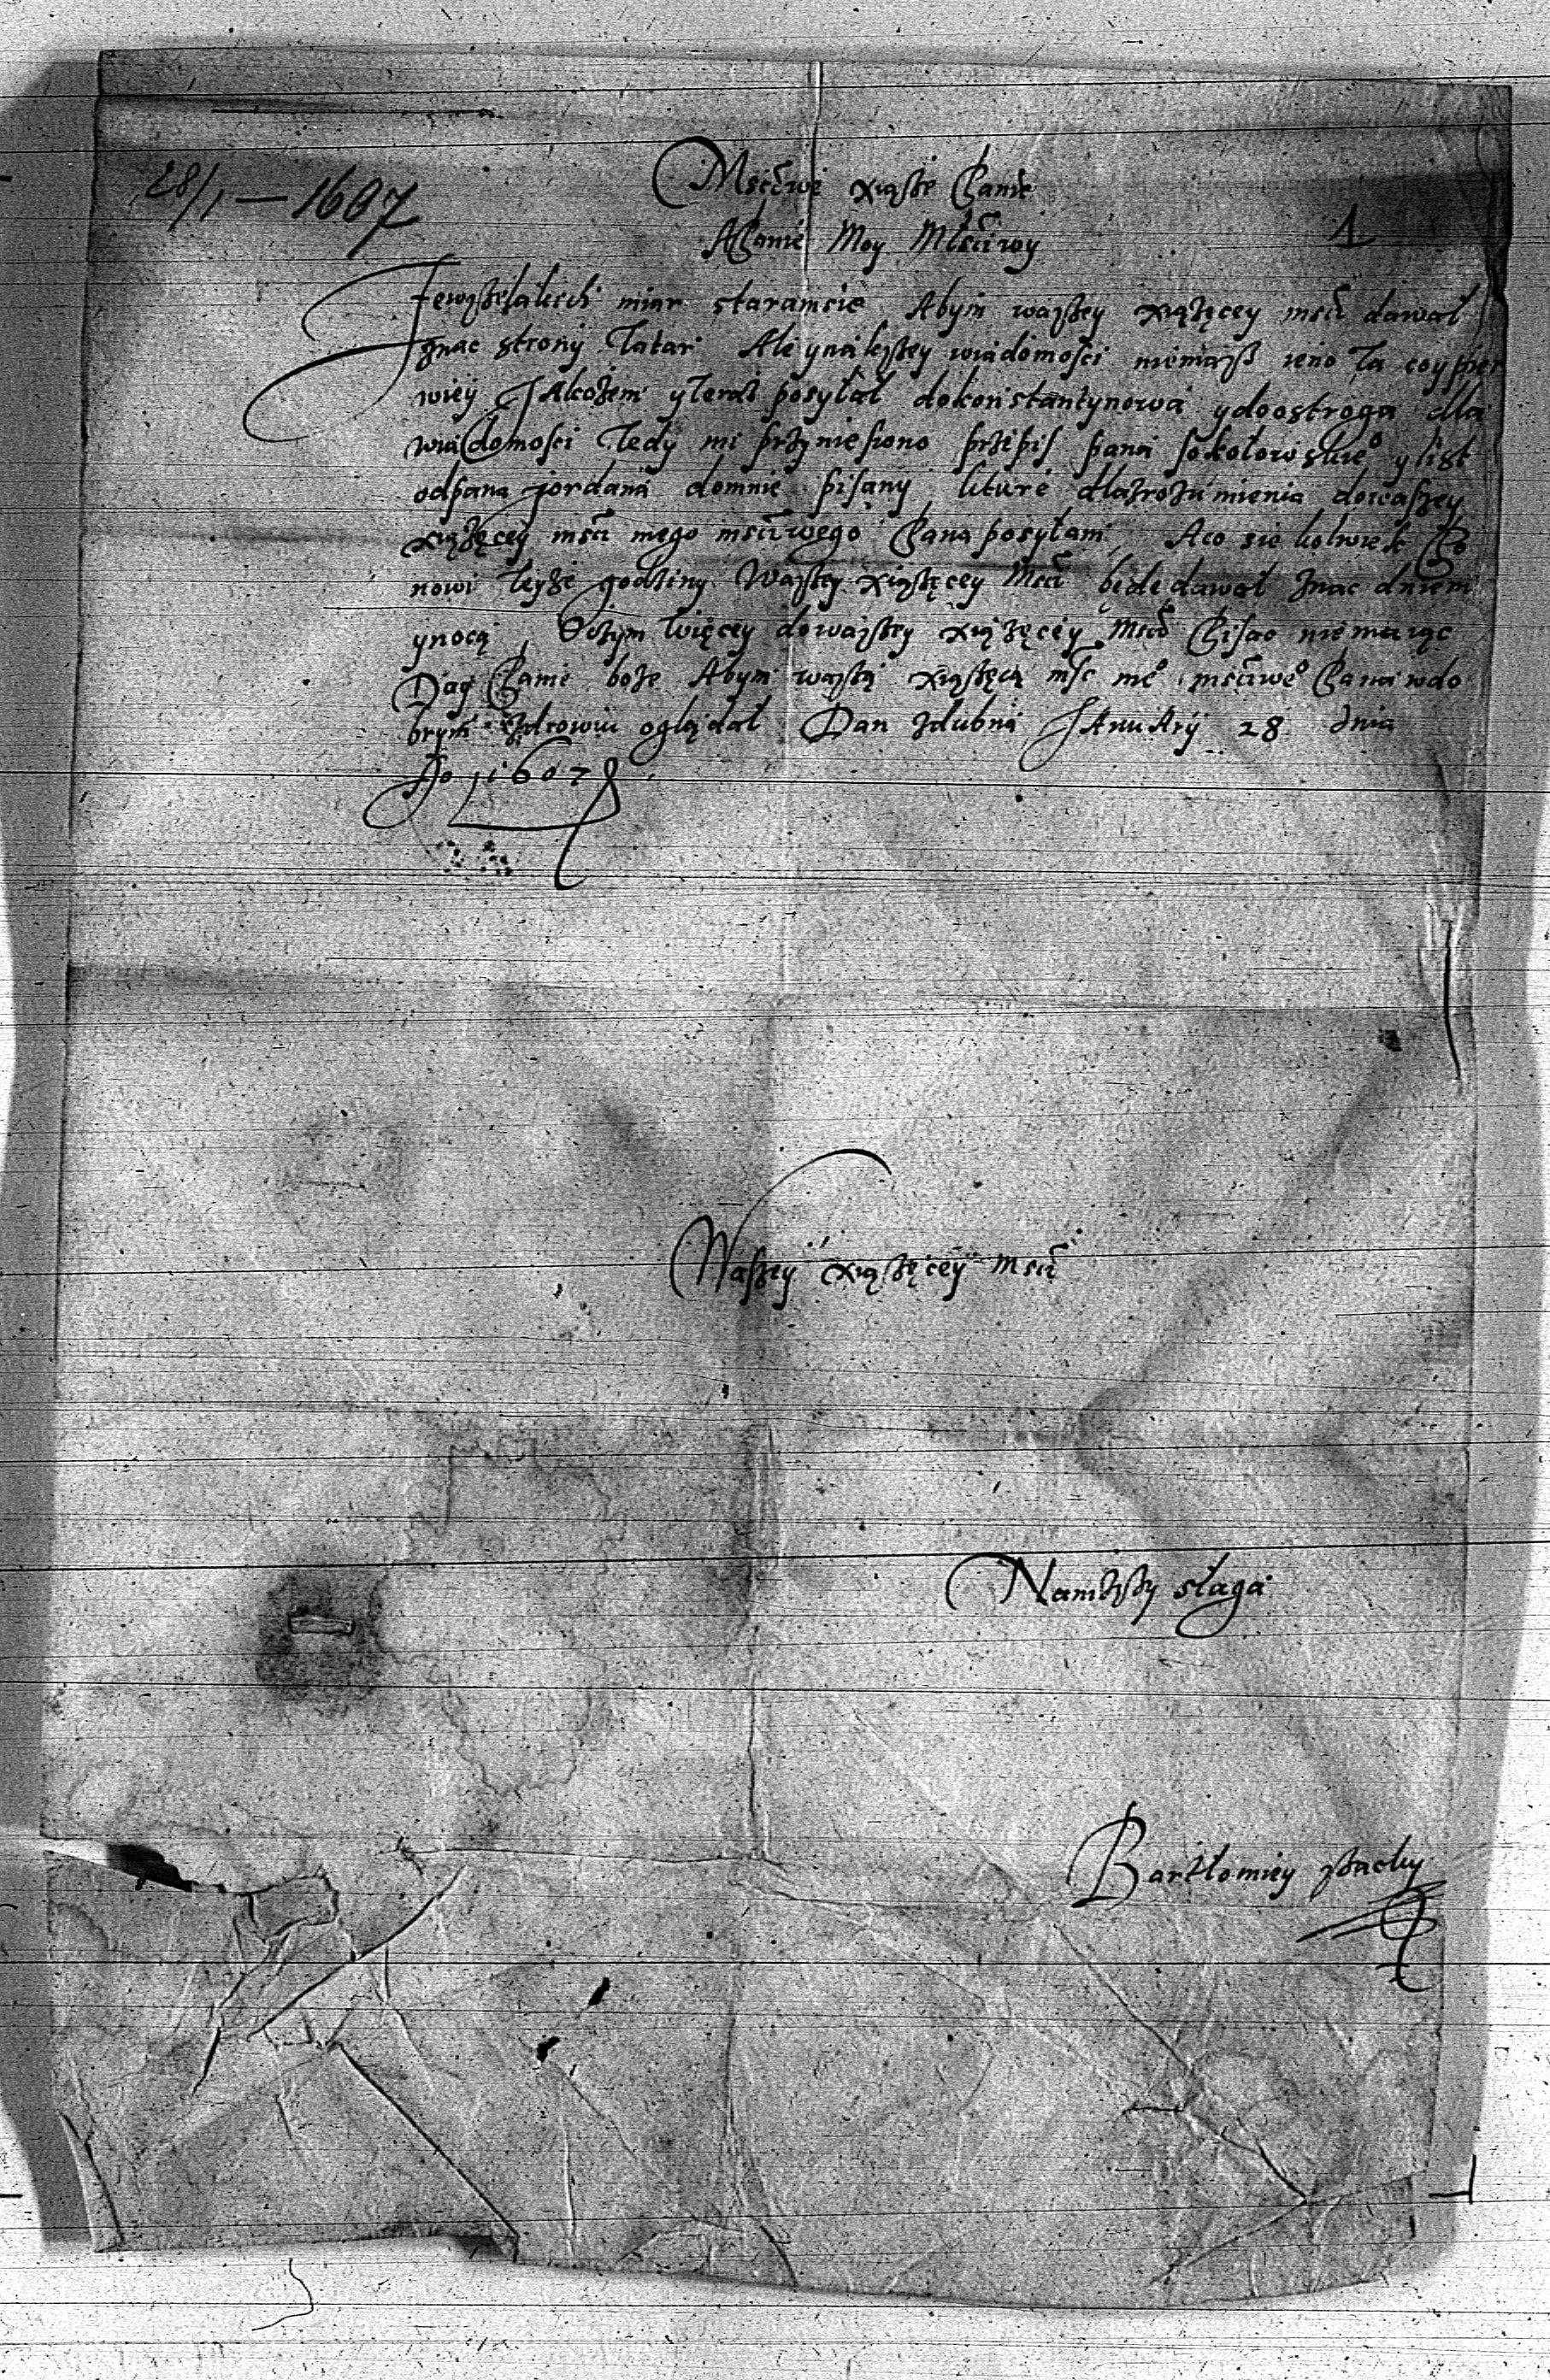 28/1 — 1607
Mściwe xiąże Panie
1
A Panie Moy Mściwy
miar staramsie Abym waszey xiążęcey mści dawał
znac strony Tatar Ale ynakszey wiadomości niemasz ieno ta coypier
wiey Jakożem yteraz posyłał dokonstantynowa ydoostroga dla
wiadomości Tedy mi przyniesiono przepis pana sokołowskie° ylist
odpana jordana domnie pisany które dlazrozumienia dowaszey
xiążęcey mści mego mściwego Pana posyłam Aco sie kolwiek Po
nowi teyże godziny Waszey xiążęcey Mści będe dawał znac dniem
ynocą więcey dowaszey xiążęcey Mści Pisac niemaiąc
Day Panie boże Abym waszą xiążęcą mśc me° mściwe° Pana wdo
brym zdrowiu oglądał Dan zdubna JAnuArij 28 dnia
Ao 1607
Waszey xiążęcey mści
Namższy sługa
Bartłomiey